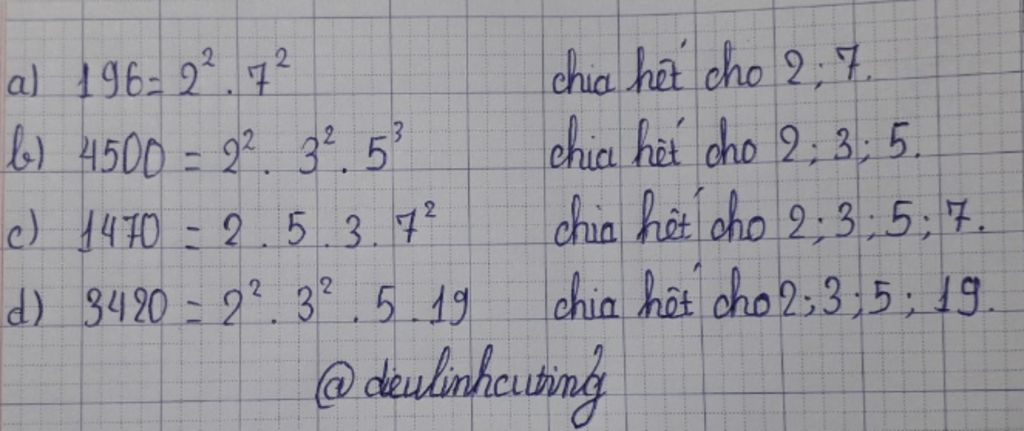 a) 196 = 2² . 7² chia hết cho 2; 7.
b) 4500 = 2² . 3² . 5³ chia hết cho 2; 3; 5.
c) 1470 = 2 . 5 . 3 . 7² chia hết cho 2; 3; 5; 7.
d) 3420 = 2² . 3² . 5 . 19 chia hết cho 2; 3; 5; 19.
@dieulinhcuting